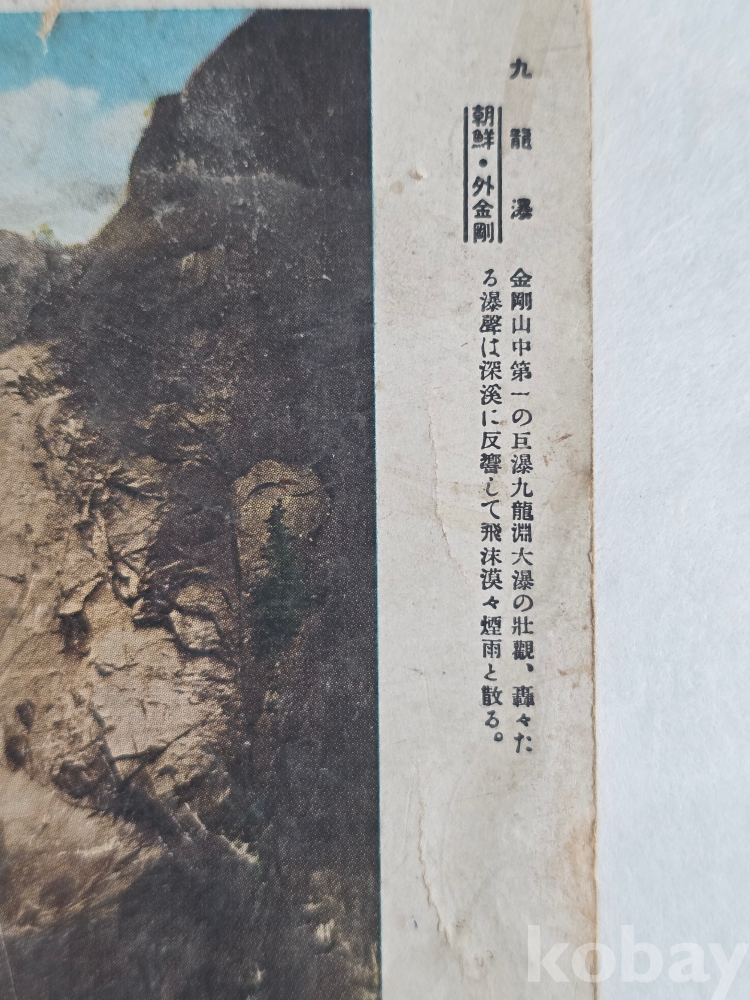 九龍瀑
朝鮮・外金剛
金剛山中第一の巨瀑九龍淵大瀑の壯觀、轟々た
る瀑聲は深溪に反響して飛沫漠々煙雨と散る。
kobay